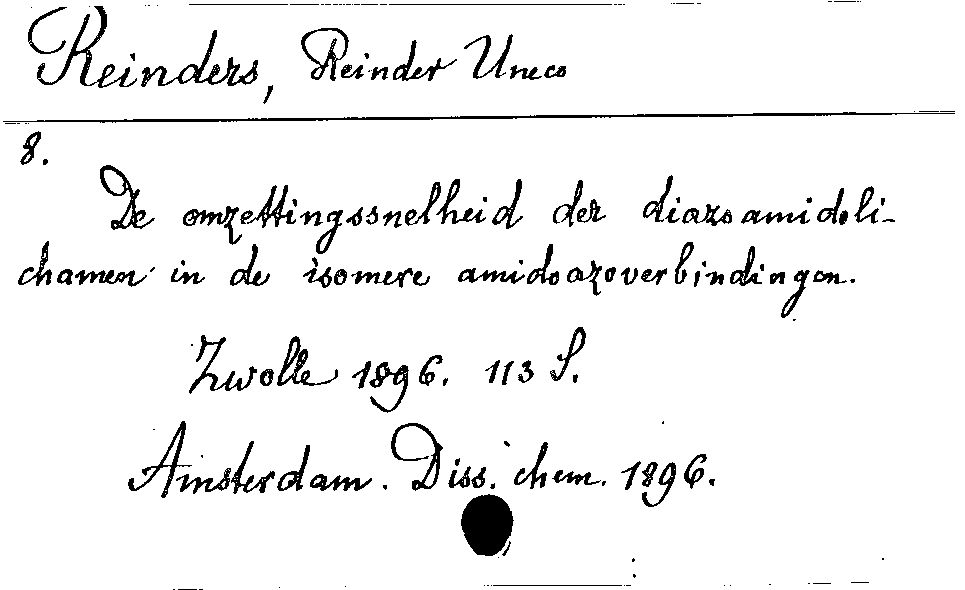 Reinders, Reinder Uneco
8.
De omzettingssnelheid der diazoamidoli-
chamen in de isomere amidoazoverbindingen.
Zwolle 1896. 113 S.
Amsterdam. Diss. chem. 1896.